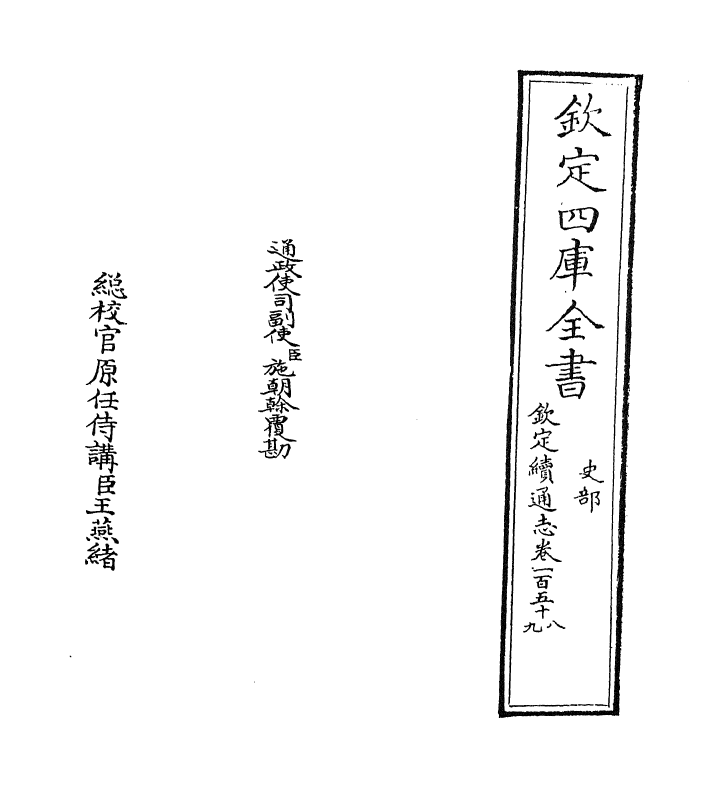 欽定四庫全書
史部
欽定續通志卷一百五十八九
通政使司副使臣施朝幹覆勘
總校官原任侍講臣王燕緒